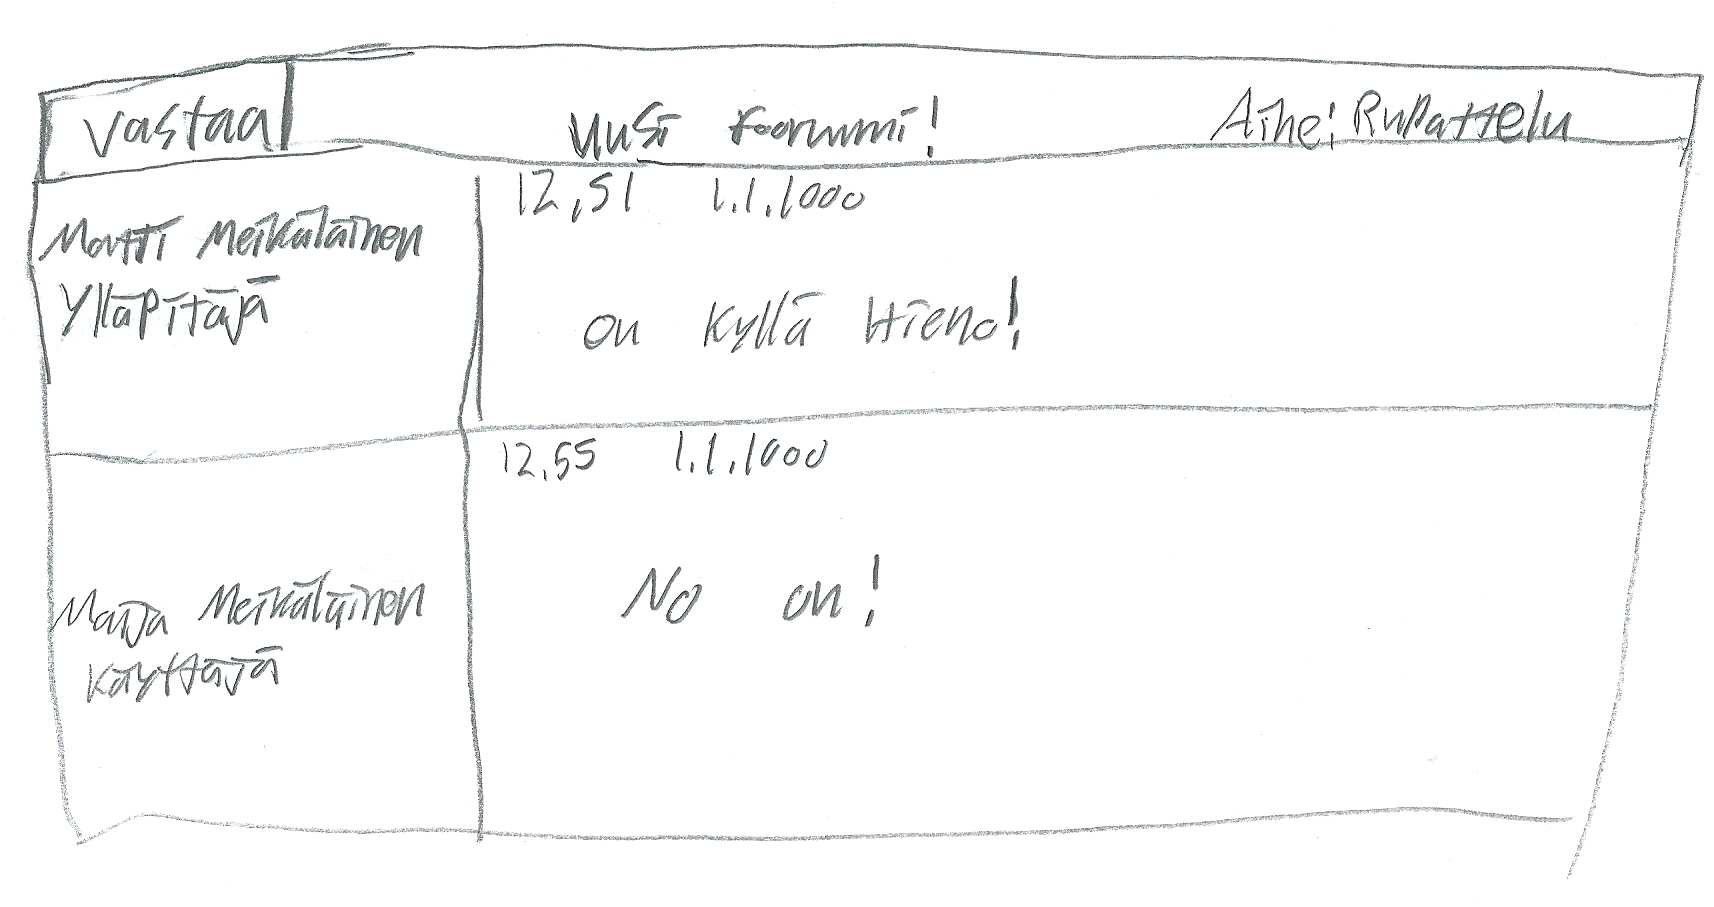 Vastaa Uusi foorumi! Aihe: Rupattelu
12,51 1.1.1000
Matti Meikäläinen
Ylläpitäjä
on kyllä Hieno!
12.55 1.1.1000
Maija Meikäläinen
Käyttäjä
No on!